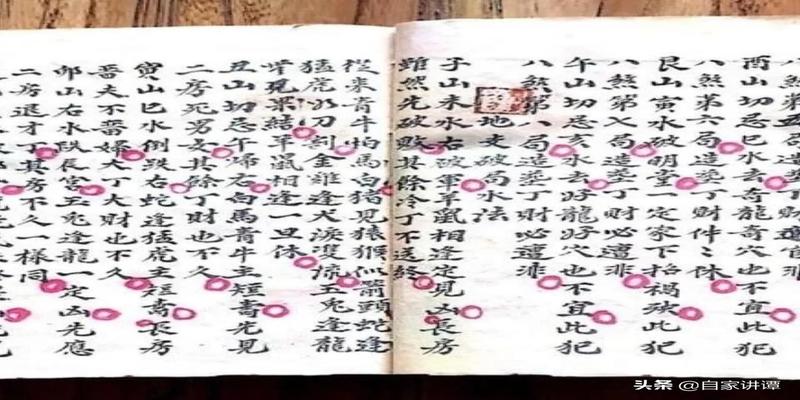 八煞第五局遭官非
酉山切忌巳水去奇龍奇穴也不宜此犯
八煞第六局造塟丁財件二休
艮山寅水破明堂一定家下招禍殃此犯
八煞第七局造塟丁財必遭非
午山切忌亥水去好龍好穴也不宜此犯
八煞第八局造塟丁財必遭非
地支破局水法
子山未水右破軍羊鼠相逢定見凶長房
雖然先破敗其餘冷丁不送終
從來青牛怕馬白猪見猿猴似箭頭蛇逢
猛虎如刀割金雞逢犬淚雙流玉兔逢龍
見羊鼠相逢一旦休
丑山切忌午歸右白馬青牛主短壽先見
二房死男女其餘丁財也不久
寅山巳水倒跌右蛇逢猛虎主短壽長房
喬夫不喬婦大丁大財也不久
卯山右水跌長宮玉兔逢龍一定凶先應
二房退才丁其房不久一樣同
头条 @自家讲谭